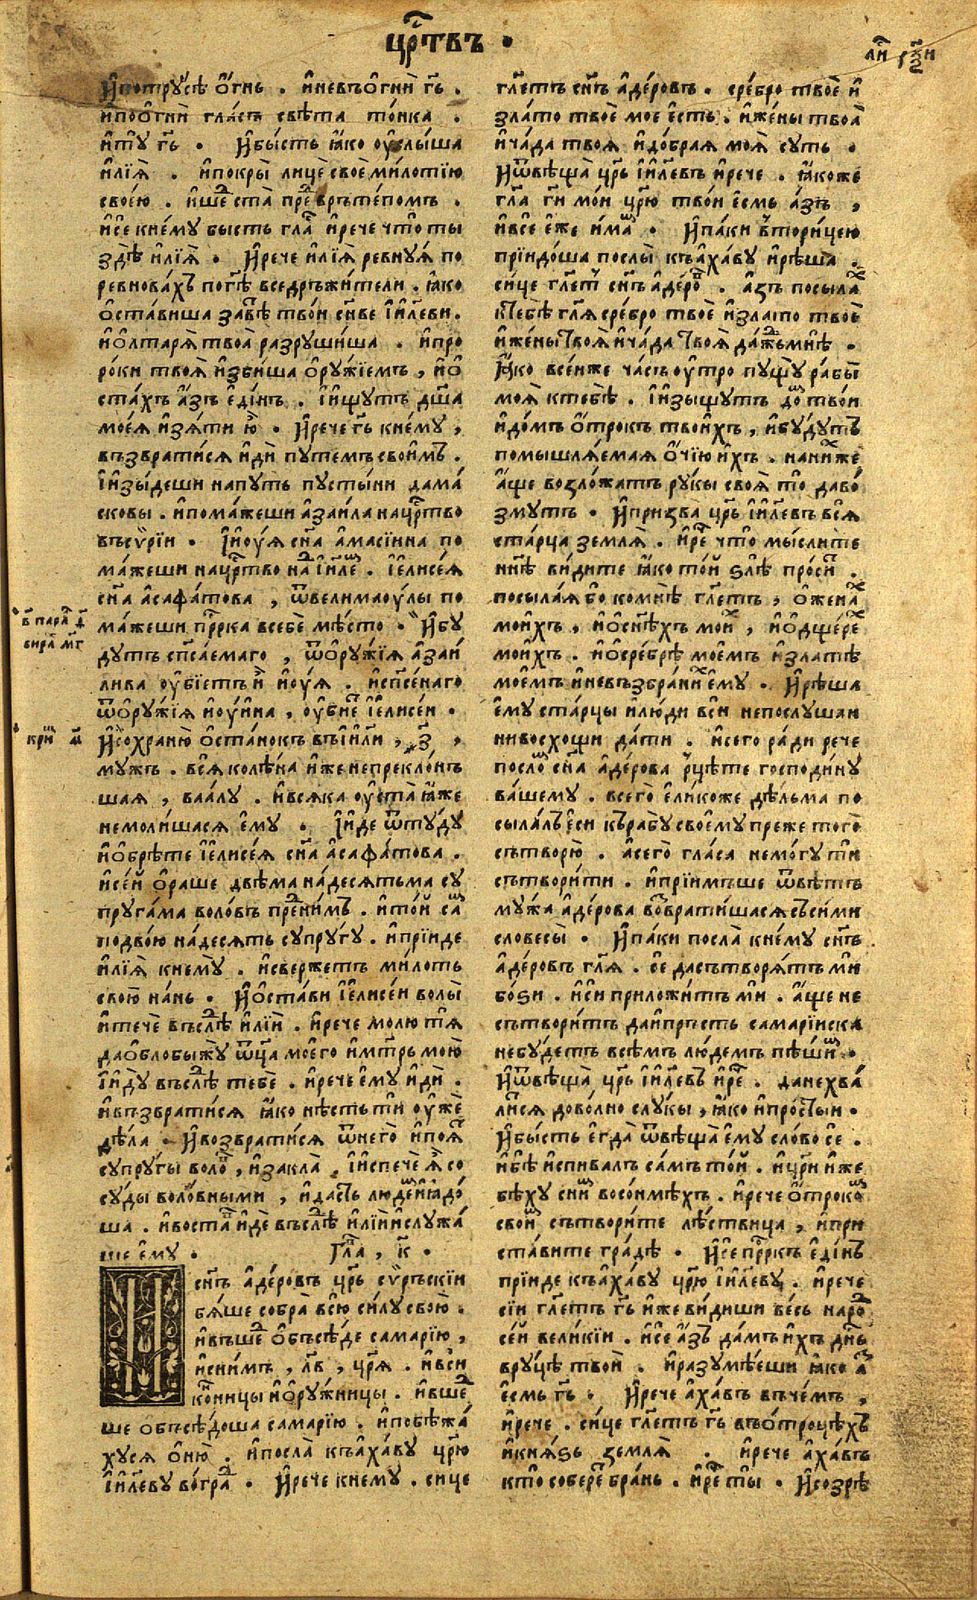 црⷭ҇твъ ·
и҆потрꙋсѣ ѻ҆гнь . и҆невъѻ҆гни гь҃ .
и҆поѻ҆гни гласъ свѣта тонка .
и҆тꙋ гь҃ · И҆бысть ꙗ҆ко ѹ҆слыша
и҆лїѧ҆ . и҆покры лице свое милотїю
своею . и҆шеⷣ ста преⷣ врътепомъ .
и҆се кнемꙋ бысть глаⷭ҇ и҆рече что ты
здѣ и҆лїѧ҆ · И҆рече и҆лїѧ҆ ревнꙋѧ по
ревновахъ погѣ҃ вседръжители . ꙗ҆ко
ѻ҆ставиша завⷮѣ твои сн҃ве і҆и҃леви .
и҆ѻ҆лтарѧ твоа разрꙋшиша . и҆про
роки твоѧ и҆збиша ѻ҆рꙋжїемъ , и҆ѻ҆
стахъ а҆зъ е҆динъ . і҆ищꙋтъ дш҃а
моеѧ и҆зѧти ю҆̀ · И҆рече гь҃ кнемꙋ ,
възвратисѧ и҆ди пꙋтемъ своимъ .
і҆изыдеши напꙋть пꙋстыни дама
сковы . и҆помажеши а҆заила нацрⷭ҇тво
въсѵрїи · І҆и҆оуѧ сн҃а а҆масїина по
мажеши нацрⷭ҇тво наⷣ і҆и҃леⷨ . і҆е҆лисеѧ
сн҃а а҆сафатова , ѿвелимаоулы по
мажеши прⷪ҇рка всебе мѣсто · И҆бꙋ
дꙋтъ сп҃саемаго , ѿѻ҆рꙋжїѧ а҆заи
лива ѹ҆бїетъ и҆ и҆оуѧ . и҆сп҃сенаго
ѿѻ҆рꙋжїѧ и҆оуина , ѹ҆бїеⷮ і҆е҆лисеи ·
И҆сохраню ѻ҆станокъ въі҆и҃ли , ҂з҃ ,
мꙋжъ . всѧ колѣна и҆же непреклонъ
шаѧ , ваалꙋ . и҆всѧка ѹ҆ста ꙗ҆же
немолишасѧ е҆мꙋ · І҆и҆де ѿтꙋдꙋ
и҆ѻ҆брѣте і҆е҆лисеѧ сн҃а а҆сафатова .
и҆сей ѻ҆раше двѣма надесѧтьма сꙋ
прꙋгама воловъ преⷣнимъ . и҆той саⷨ
подвою надесѧть сꙋпрꙋгꙋ . и҆прїиде
и҆лїѧ҆ кнемꙋ . и҆свержетъ милоть
свою нань · И҆ѻ҆стави і҆е҆лисеи волы
и҆тече въслⷣѣ и҆лїи . и҆рече молю тѧ
даѻ҆блобыжꙋ ѿц҃а моего и҆мт҃рь мою
і҆и҆дꙋ въслⷣѣ тебе . и҆рече е҆мꙋ и҆ди .
и҆възвратисѧ ꙗ҆ко нѣсть ти ѹ҆же
дѣла · И҆возвратисѧ ѿнего и҆поѧⷮ
сꙋпрꙋгы волоⷡ , и҆закла . і҆испече ѧ҆̀ со
сꙋды воловными , и҆дасть людеⷨ и҆ꙗ҆до
ша . и҆востаⷡ и҆де въслⷣѣ и҆лїи и҆слꙋжа
ше е҆мꙋ · Глаⷡ , к҃ ·
сн҃ъ а҆деровъ црⷭ҇ь сѵръскїи
бѧше собра всю силꙋ свою .
и҆въшеⷣ ѻ҆бъсѣде самарїю ,
и҆снимъ , лв҃ , црⷭ҇ѧ . и҆вси
конницы и҆ѻ҆рꙋжницы . и҆вшеⷣ
ше объсѣдоша самарїю . и҆побѣжа
хꙋсѧ ѻ҆ню . и҆посла къа҆хавꙋ црⷭ҇ю
і҆и҃левꙋ воградⷣ · И҆рече кнемꙋ . сице
гл҃етъ сн҃ъ а҆деровъ . сребро твое и҆
злато твое мое е҆сть . и҆жены твоа
и҆чада твоѧ и҆добраѧ моѧ сꙋть ·
И҆ѿвѣща црⷭ҇ь і҆и҃левъ и҆рече . ꙗ҆коже
гл҃а гн҃ мои црⷭ҇ю твои е҆смь а҆зъ ,
и҆все е҆же и҆маⷨ · И҆паки вⷮторицею
прїидоша послы къа҆хавꙋ и҆рѣша .
сице гл҃етⷮ сн҃ъ а҆дероⷡ . а҆зъ посылаⷯ
ктебѣ гл҃ѧ сребро твое и҆злато твое
и҆жены твоѧ и҆чада твоѧ дажⷣьмнѣ ·
Ꙗ҆ко всеиже часъ ѹ҆тро пꙋщꙋ рабы
моѧ ктебѣ . і҆изыщꙋтъ доⷨ твои
и҆домъ ѻ҆трокъ твоихъ , и҆бꙋдꙋтъ
помышлѧемаѧ ѻ҆чїю и҆хъ . наниⷯже
а҆ще возложатъ рꙋкы своѧ то даво
змꙋтъ · И҆призва црⷭ҇ь і҆и҃левъ всѧ
старца землѧ . и҆реⷱ что мыслите
нн҃ѣ видите ꙗ҆ко той ѕлѣ просиⷮ .
посылаѧ бо комнѣ гл҃етъ , ѻ҆женаⷯ
моихъ , и҆ѻ҆сн҃ѣхъ моиⷯ , и҆ѻ҆дщереⷯ
моихъ . и҆ѻ҆сребрѣ моемъ и҆златѣ
моемъ и҆невъзбраниⷯ е҆мꙋ . И҆рѣша
е҆мꙋ старцы и҆люди вси непослꙋшаи
нивосхощи дати . и҆сего ради рече
послоⷨ сн҃а а҆дерова рцѣте господинꙋ
вашемꙋ . всего е҆ликоже дѣльма по
сылалъ е҆си крабꙋ своемꙋ преже того
сътворю . а҆сего гласа немогꙋ ти
сътворити . и҆прїимъше ѿвѣтъ
мꙋжа а҆дерова воⷥвратишасѧ съсими
словесы · И҆паки посла кнемꙋ сн҃ъ
а҆деровъ гл҃ѧ . се дасътворѧтъ ми
боѕи . и҆си приложитъ ми . а҆ще не
сътворитъ даипрьсть самарїиска
небꙋдетъ всѣмъ людемъ пѣшиⷨ ·
И҆ѿвѣща црⷭ҇ь і҆и҃левъ и҆реⷱ . данехва
лисѧ доволно слꙋкы , ꙗ҆ко и҆простыи ·
И҆бысть е҆гда ѿвѣща е҆мꙋ слово се .
и҆бѣ и҆спивалъ самъ той . и҆црⷭ҇и и҆же
бѣхꙋ сниⷨ восонмѣхъ . и҆рече ѻ҆трокоⷨ
своиⷨ сътворите лѣствица , и҆при
ставите градѣ · И҆се прⷪ҇ркъ е҆динъ
прїиде къа҆хавꙋ црⷭ҇ю і҆и҃левꙋ . и҆рече
сїи гл҃етъ гь҃ и҆же видиши весь нароⷣ
сей великїи . и҆се а҆зъ дамъ и҆хъ дн҃ь
врꙋцѣ твои . и҆разꙋмѣеши ꙗ҆ко аⷥ
е҆смь гь҃ · И҆рече а҆хавъ въчемъ ,
и҆рече . сице гл҃етъ гь҃ въѻ҆троцѣхъ
и҆кнѧѕь землѧ . и҆рече а҆хавъ
кто собереⷮ брань . и҆реⷱ ты · И҆созрѣ